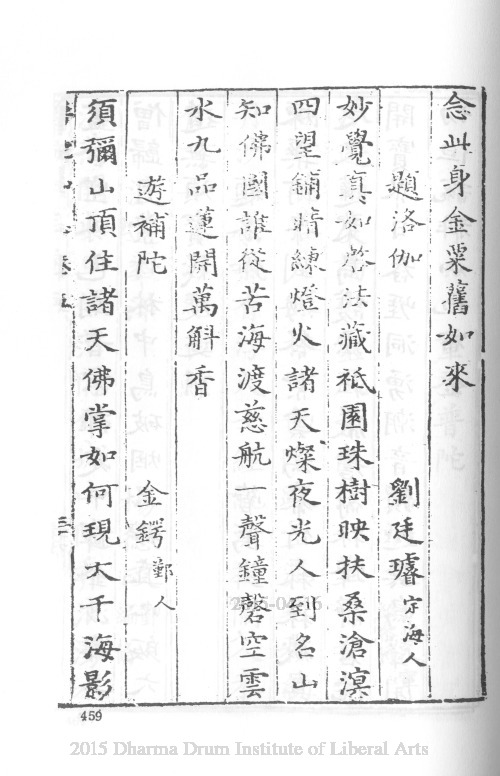 念此身金粟舊如來
題洛伽 劉廷璿定海人
妙覺真如啓法藏祇園珠樹映扶桑滄溟
四望鋪晴練燈火諸天燦夜光人到名山
知佛國誰從苦海渡慈航一聲鐘磬空雲
水九品蓮開萬斛香
遊補陀 金鍔鄞人
須彌山頂住諸天佛掌如何現大千海影
459
2015 Dharma Drum Institute of Liberal Arts